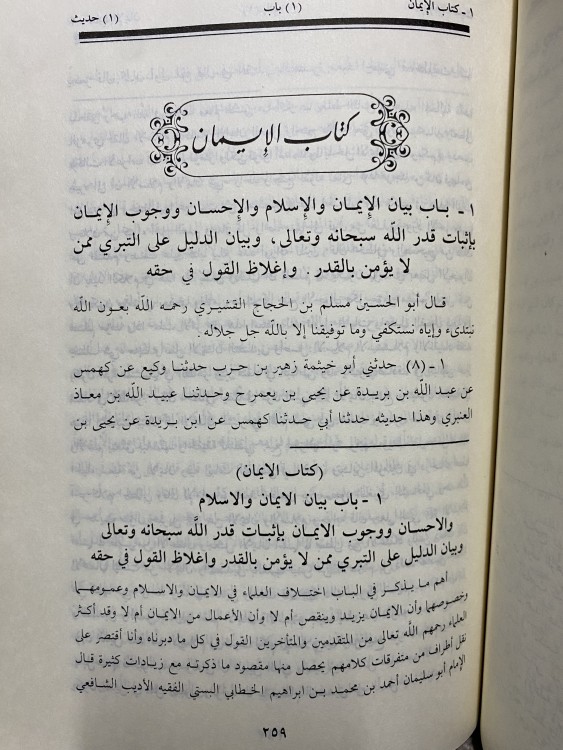 ١ ـ كتاب الإيمان (١) باب (١) حديث
كتاب الإيمان
١ ـ باب بيان الإيمان والإسلام والإحسان ووجوب الإيمان
بإثبات قدر الله سبحانه وتعالى، وبيان الدليل على التبري ممن
لا يؤمن بالقدر. وإغلاظ القول في حقه
قال أبو الحسين مسلم بن الحجاج القشيري رحمه الله بعون الله
نبتدىء وإياه نستكفي وما توفيقنا إلا بالله جل جلاله.
١ ـ (٨) حدثني أبو خيثمة زهير بن حرب حدثنا وكيع عن كهمس
عن عبد الله بن بريدة عن يحيى بن يعمر ح وحدثنا عبيد الله بن معاذ
العنبري وهذا حديثه حدثنا أبي حدثنا كهمس عن ابن بريدة عن يحيى بن
(كتاب الايمان)
١ - باب بيان الايمان والاسلام
والاحسان ووجوب الايمان بإثبات قدر الله سبحانه وتعالى
وبيان الدليل على التبري ممن لا يؤمن بالقدر واغلاظ القول في حقه
أهم ما يذكر في الباب اختلاف العلماء في الايمان والاسلام وعمومهما
وخصوصهما وأن الايمان يزيد وينقص أم لا وأن الأعمال من الايمان أم لا وقد أكثر
العلماء رحمهم الله تعالى من المتقدمين والمتأخرين القول في كل ما دبرناه وأنا أقتصر على
نقل أطراف من متفرقات كلامهم يحصل منها مقصود ما ذكرته مع زيادات كثيرة قال
الإمام أبو سليمان أحمد بن محمد بن ابراهيم الخطابي البستي الفقيه الأديب الشافعي
٢٥٩